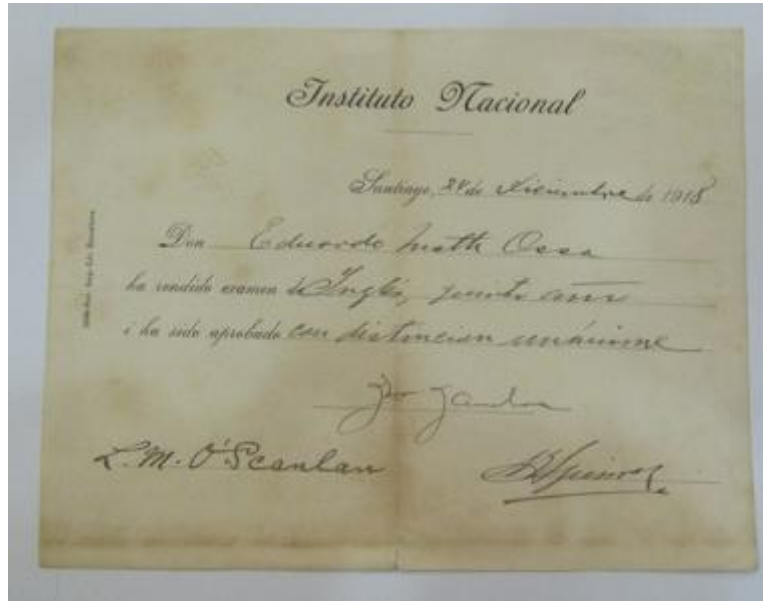 Instituto Nacional
Santiago, 24 de Diciembre de 1918
Don Eduardo Ossa
ha rendido examen de Inglés, año
i ha sido aprobado con distincion unánime
L. M. O'Scanlan